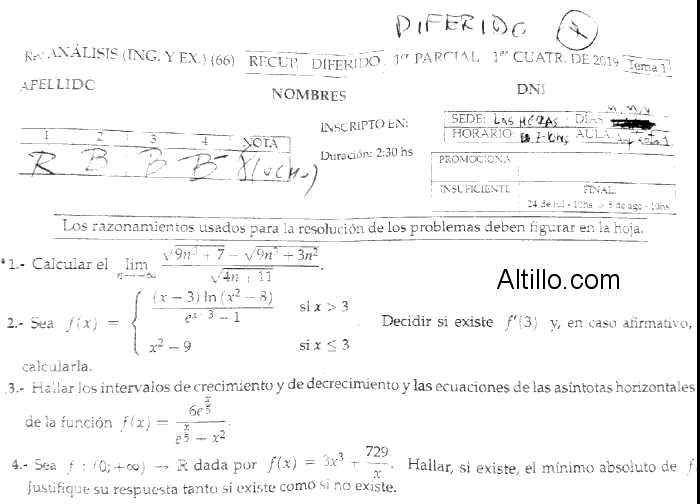 DIFERIDO
ANÁLISIS (ING. Y EX.) (66) RECUP. DIFERIDO. 1er PARCIAL 1er CUATR. DE 2019 Tema 1
APELLIDO NOMBRES DNI
INSCRIPTO EN:
SEDE: LAS HERAS DIAS:
HORARIO: 7-10hs AULA:
1 2 3 4 NOTA
R B B B- 8 (OCHO)
Duración: 2:30 hs
PROMOCIONA
INSUFICIENTE FINAL:
24 de jul - 10hs o 5 de ago - 10hs
Los razonamientos usados para la resolución de los problemas deben figurar en la hoja.
1.- Calcular el lim n→+∞ (√(9n³ + 7) − √(9n³ + 3n²)) / √(4n + 11).
Altillo.com
2.- Sea f(x) = { (x − 3) ln (x² − 8) / (e^(x−3) − 1) si x > 3
x² − 9 si x ≤ 3
Decidir si existe f'(3) y, en caso afirmativo,
calcularla.
3.- Hallar los intervalos de crecimiento y de decrecimiento y las ecuaciones de las asíntotas horizontales
de la función f(x) = 6e^(x/5) / (e^(x/5) + x²).
4.- Sea f : (0; +∞) → ℝ dada por f(x) = 3x³ + 729/x. Hallar, si existe, el mínimo absoluto de f
Justifique su respuesta tanto si existe como si no existe.